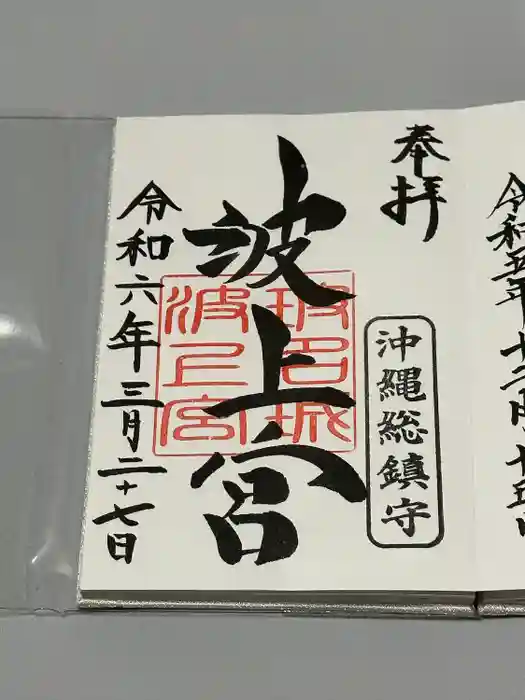 奉拝
沖縄総鎮守
波上宮
波上宮
令和六年三月二十七日
令和五年十二月十五日